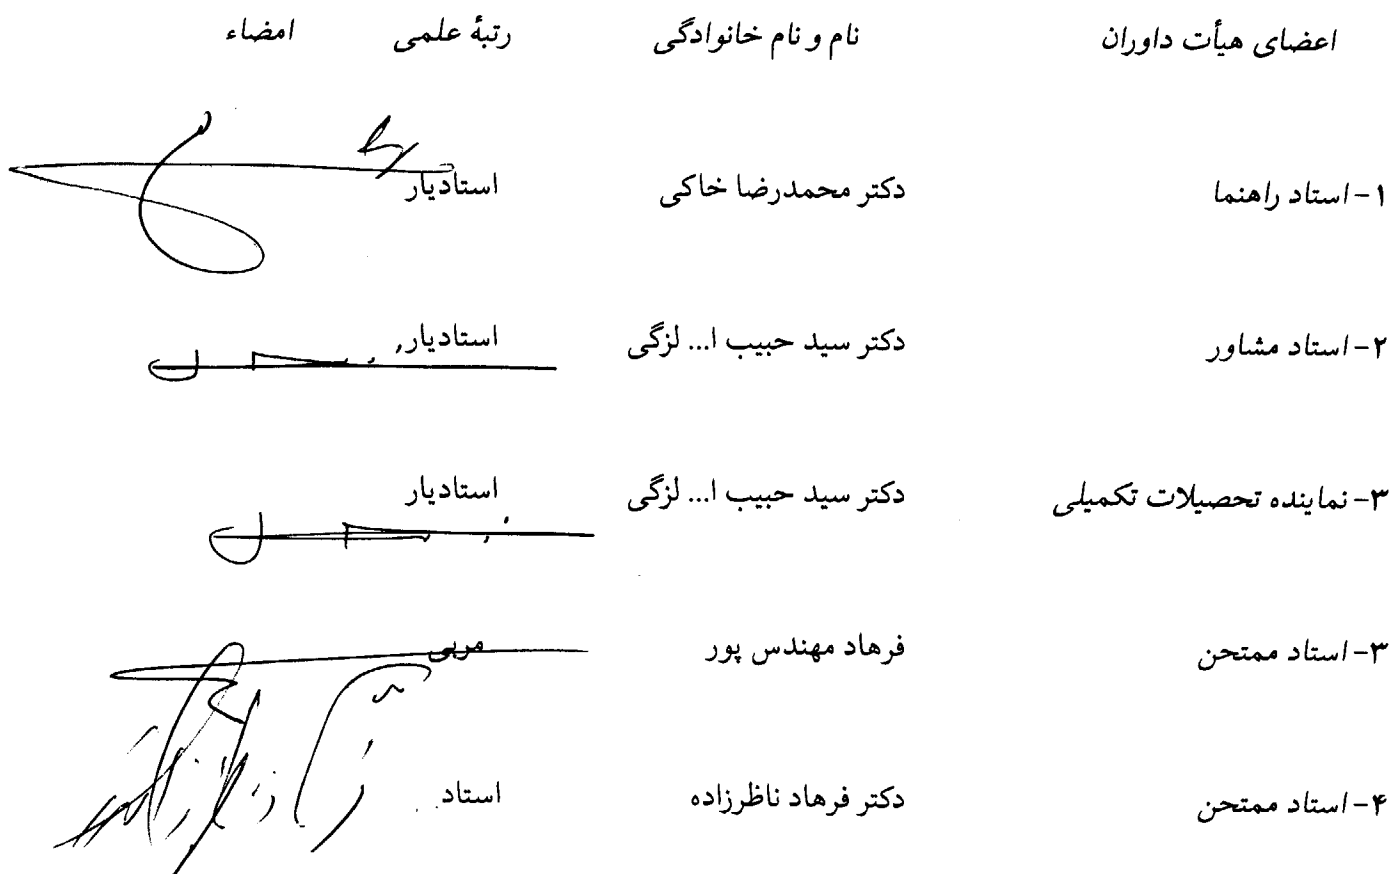 اعضای هیأت داوران نام و نام خانوادگی رتبهٔ علمی امضاء
۱- استاد راهنما دکتر محمدرضا خاکی استادیار
۲- استاد مشاور دکتر سید حبیب ا... لزگی استادیار
۳- نماینده تحصیلات تکمیلی دکتر سید حبیب ا... لزگی استادیار
۳- استاد ممتحن فرهاد مهندس پور مربی
۴- استاد ممتحن دکتر فرهاد ناظرزاده استاد